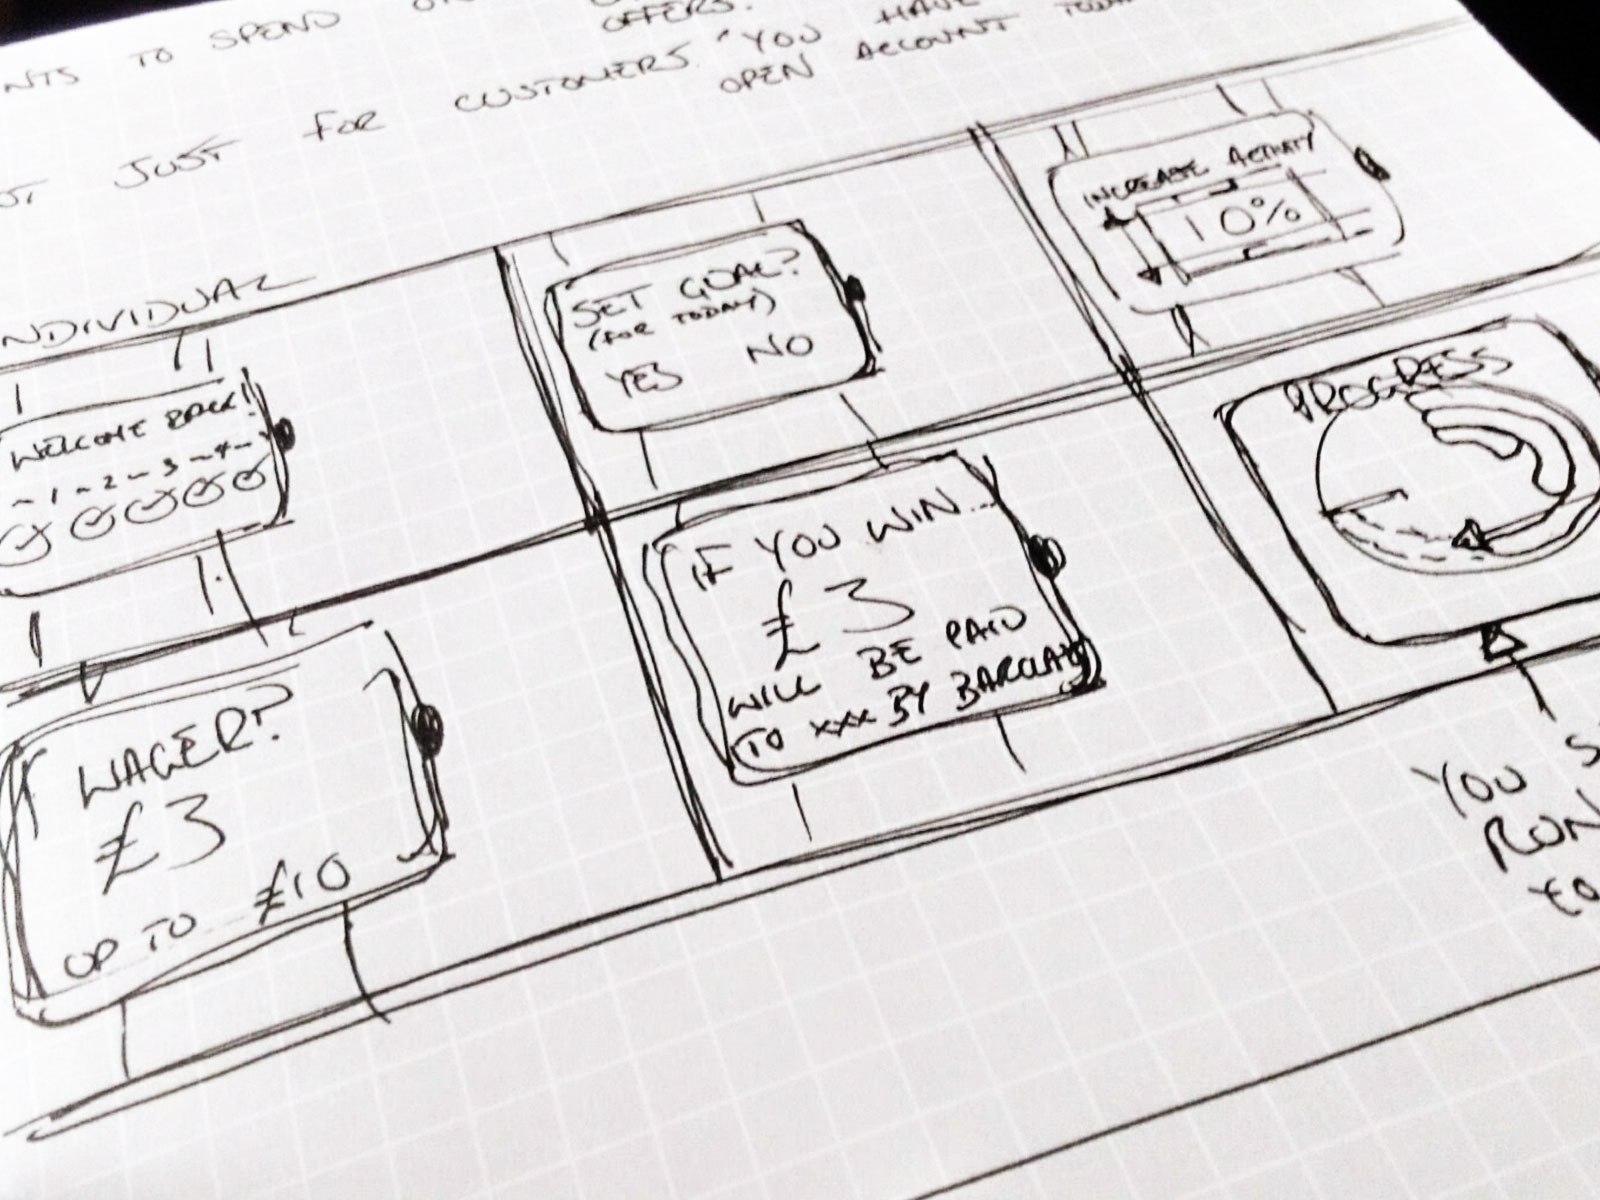 NTS TO SPEND
OFFERS.
JUST FOR CUSTOMERS. "YOU HAVE
OPEN ACCOUNT TODAY
NDIVIDUAL
WELCOME BACK!
~ 1 ~ 2 ~ 3 ~ 4 ~
SET GOAL?
(FOR TODAY)
YES NO
INCREASE ACTIVITY
10%
WAGER?
£3
UP TO £10
IF YOU WIN...
£3
WILL BE PAID
TO xxx BY BARCLAYS
PROGRESS
YOU S
RUN
YO